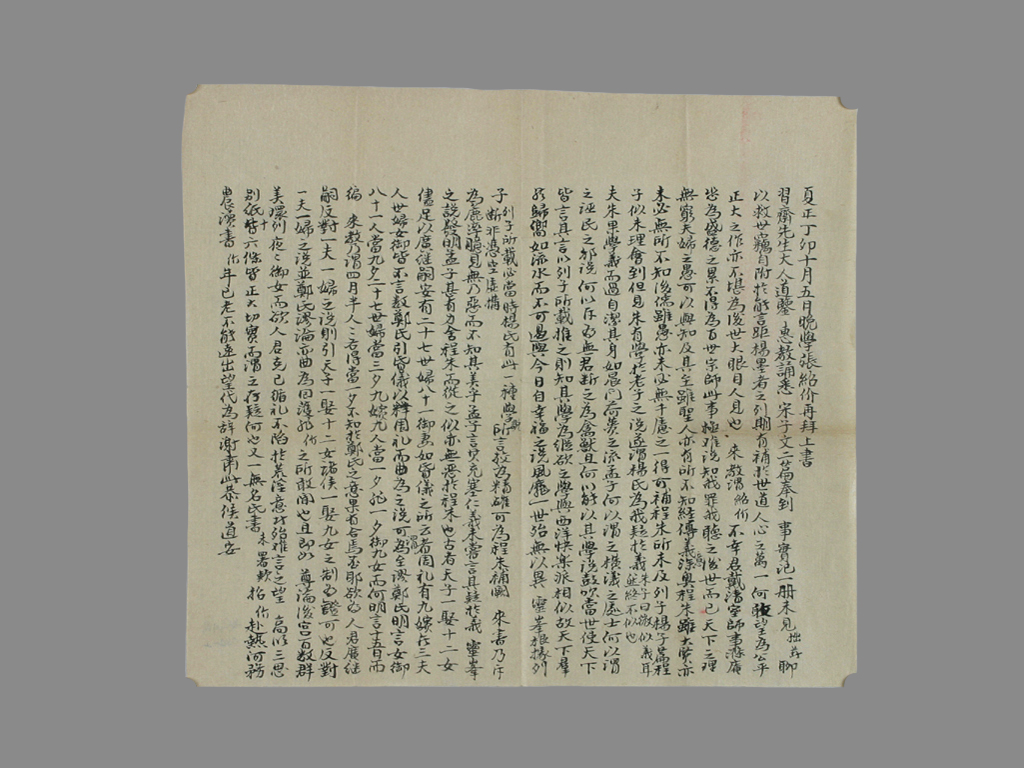 夏正丁卯十月五日晚學張紹价再拜上書
習齋先生大人道鑒 惠教誦悉 宋子文二篇奉到 事實記一冊未見 拙著聊
以救世竊自附於能言距楊墨者之列期有補於世道人心之萬一何敢望為公平
正大之作亦不堪為後世大眼目人見也 來教謂紹价不幸君戴潛室師事
皆為盛德之累不得為百世宗師此事極難說知我罪我聽之後世而已天下之理
無窮夫婦之愚可以與知及其至雖聖人亦有所不知經傳義深奧程朱雖大賢亦
未必無所不知後儒雖愚亦未必無千慮之一得可補程朱所未及列子楊子篇程
子似未理會到但見朱有學於老子之說遂謂楊氏為我疑於義朱子曰微似義耳然終不似也
夫朱果學義而過自潔其身如晨門荷蕢之流孟子何以謂之橫議之處士何以謂
之誣民之邪說何以斥為無君斷之為禽獸且何以能以其學說鼓吹當世使天下
皆言其言以列子所載推之則知其學為縱欲之學與西洋快樂派相似故天下群
然歸嚮如流水而不可遏與今日自幸福之說風靡一世殆無以異 靈峯根據列
子列子所載必當時楊氏有此一種學說斷非憑空虛構所言較為精確可為程朱補闕 來書乃斥
為鹿潭臆見無乃惡而不知其美乎孟子言充塞仁義未嘗言其疑於義 靈峯
之說發明孟子甚有力舍程朱而從之似亦無惡於程朱也古者天子一娶十二女
儘足以廣繼嗣安有二十七世婦八十一御妻如昏儀之所云者周禮有九嬪在三夫
人世婦女御皆不言數鄭氏引昏儀以釋周禮而曲為之說可為至謬鄭氏明言女御
八十一人當九夕二十七世婦當三夕九嬪九人當一夕既一夕御九女而何明言十五日而
徧 來教乃謂四月半人人方得當一夕不知於鄭氏之意果有合焉否耶欲為人君廣繼
嗣反對一夫一婦之說則引天子一娶十二女諸侯一娶九女之制為證可也反對
一夫一婦之說並鄭氏謬論亦曲為回護非价之所敢聞也且即如 尊論後宮百數群
美環列夜夜御女而欲人君克己循禮不陷於荒淫意巧殆難言之望 高明三思
別紙十六條皆正大切實而謂之存疑何也又一無名氏書未署款 抬价赴熱河務
農漢書价年已老不能遠出望代為辭謝肅此恭候道安